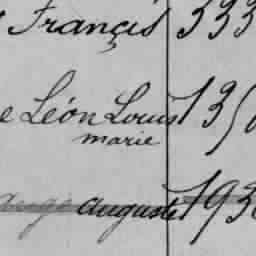 Francis 333
e Léon Louis 135
marie
auguste 193